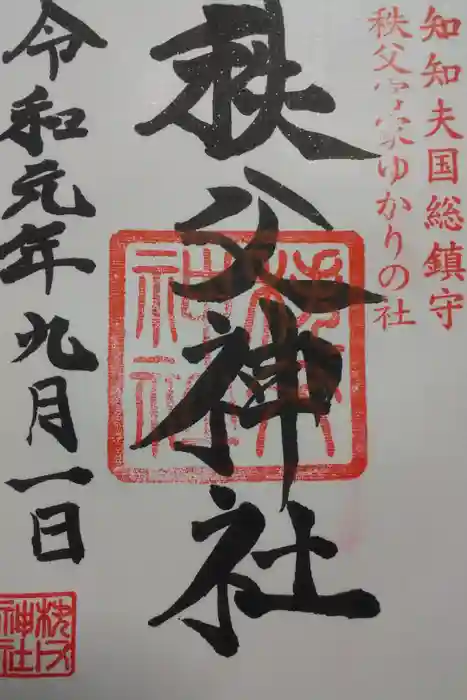 知知夫国総鎮守
秩父宮家ゆかりの社
秩父神社
令和元年九月一日
秩父神社
秩父神社